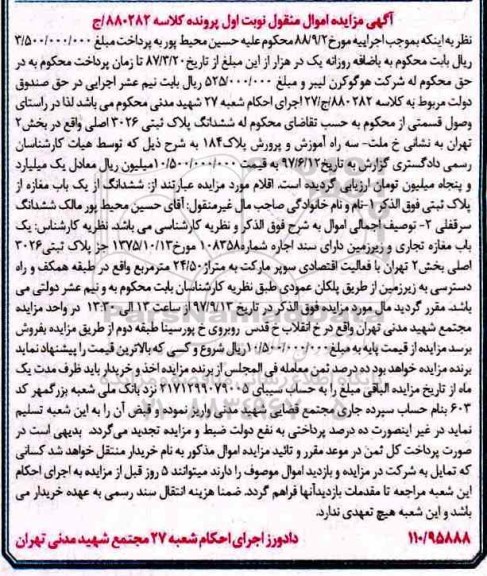 آگهی مزایده اموال منقول نوبت اول پرونده کلاسه ۸۸۰۲۸۲/ج
نظر به اینکه بموجب اجراییه مورخ ۸۸/۹/۲ محکوم علیه حسین محیط پور به پرداخت مبلغ ۳/۵۰۰/۰۰۰/۰۰۰
ریال بابت محکوم به باضافه روزانه یک در هزار از این مبلغ از تاریخ ۸۷/۳/۲۰ تا زمان پرداخت محکوم به در
حق محکوم له شرکت هوگوکرن لیبر و مبلغ ۵۲۵/۰۰۰/۰۰۰ ریال بابت نیم عشر اجرایی در حق صندوق
دولت مربوط به کلاسه ۸۸۰۲۸۲/ج/۲۷ اجرای احکام شعبه ۲۷ شهید مدنی محکوم می باشد لذا در راستای
وصول قسمتی از محکوم به حسب تقاضای محکوم له ششدانگ پلاک ثبتی ۳۰۲۶ اصلی واقع در بخش۲
تهران به نشانی خ ملت- سه راه آموزش و پرورش پلاک۱۸۴ به شرح ذیل که توسط هیات کارشناسان
رسمی دادگستری گزارش به تاریخ ۹۷/۶/۱۲ به قیمت ۱۰/۵۰۰/۰۰۰/۰۰۰میلیون ریال معادل یک میلیارد
و پنجاه میلیون تومان ارزیابی گردیده است. اقلام مورد مزایده عبارتند از: ششدانگ از یک باب مغازه از
پلاک ثبتی فوق الذکر ۱-نام و نام خانوادگی صاحب مال غیرمنقول: آقای حسین محیط پور مالک ششدانگ
سرقفلی ۲- توصیف اجمالی اموال به شرح فوق الذکر و نظریه کارشناسی می باشد. نظریه کارشناس: یک
باب مغازه تجاری و زیرزمین دارای سند اجاره شماره۱۰۸۳۵۸ مورخ ۱۳۷۵/۱۰/۱۳ جز پلاک ثبتی۳۰۲۶
اصلی بخش۲ تهران با فعالیت اقتصادی سوپر مارکت به متراژ ۲۴/۵۰ مترمربع واقع در طبقه همکف و راه
دسترسی به زیرزمین از طریق پلکان عمودی طبق نظریه کارشناسان بابت محکوم به و نیم عشر دولتی می
باشد. مقرر گردید مال مورد مزایده فوق الذکر در تاریخ ۹۷/۹/۱۳ از ساعت ۱۳ الی ۱۳:۳۰ در واحد مزایده
مجتمع شهید مدنی تهران واقع در خ انقلاب خ قدس روبروی خ پورسینا طبقه دوم از طریق مزایده بفروش
برسد مزایده از قیمت پایه به مبلغ ۱۰/۵۰۰/۰۰۰/۰۰۰ ریال شروع و کسی که بالاترین قیمت را پیشنهاد نماید
برنده مزایده خواهد بود ده درصد ثمن معامله فی المجلس از برنده مزایده اخذ و خریدار باید ظرف مدت یک
ماه از تاریخ مزایده الباقی مبلغ را به حساب سیبای ۲۱۷۱۲۹۹۰۷۹۰۰۵ نزد بانک ملی شعبه بزرگمهر کد
۶۰۳ بنام حساب سپرده جاری مجتمع قضایی شهید مدنی واریز نموده و قبض آن را به این شعبه تسلیم
نماید در غیر اینصورت ده درصد پرداختی به نفع دولت ضبط و مزایده تجدید می‌گردد. بدیهی است در
صورت پرداخت کل ثمن در موعد مقرر و تائید مزایده اموال مذکور به نام خریدار منتقل خواهد شد کسانی
که تمایل به شرکت در مزایده و بازدید اموال موصوف را دارند میتوانند ۵ روز قبل از مزایده به اجرای احکام
این شعبه مراجعه تا مقدمات بازدیدآنها فراهم گردد. ضمنا هزینه انتقال سند رسمی به عهده خریدار می
باشد و این شعبه هیچ تعهدی ندارد.
۱۱۰/۹۵۸۸۸ دادورز اجرای احکام شعبه ۲۷ مجتمع شهید مدنی تهران